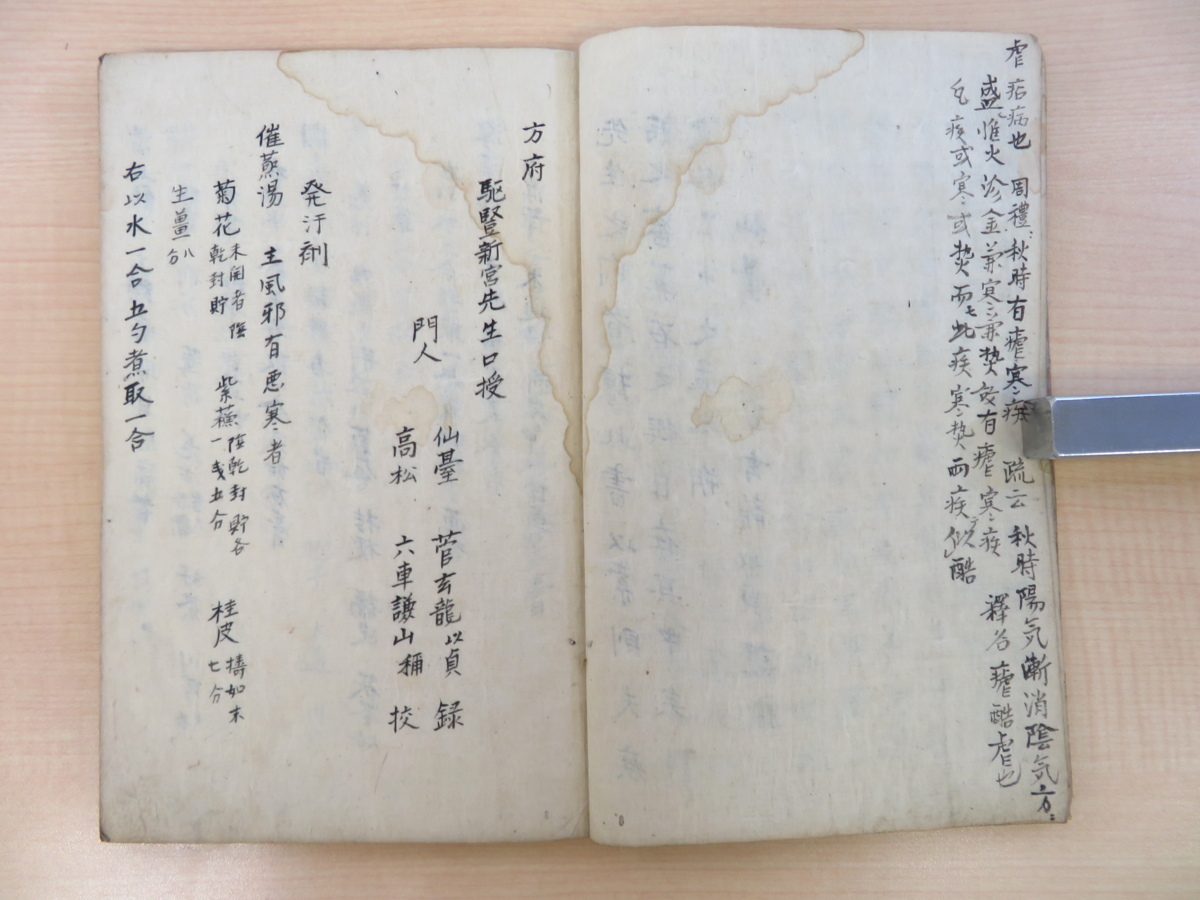 瘧 痁病也 周禮秋時有瘧寒疾 疏云 秋時陽気漸消陰気方
盛惟火沴金兼寒兼熱故有瘧寒疾 釋名 瘧酷虐也
凡疾或寒或熱而此疾寒熱両疾似酷
方府
駆豎新宮先生口授
門人
仙臺 菅玄龍以貞 録
高松 六車謙山稱 校
発汗剤
催蒸湯 主風邪有悪寒者
菊花 未開者陰乾封貯 紫蘇 陰乾封貯各一戔五分 桂皮 擣如末七分
生薑 八分
右以水一合五勺煮取一合